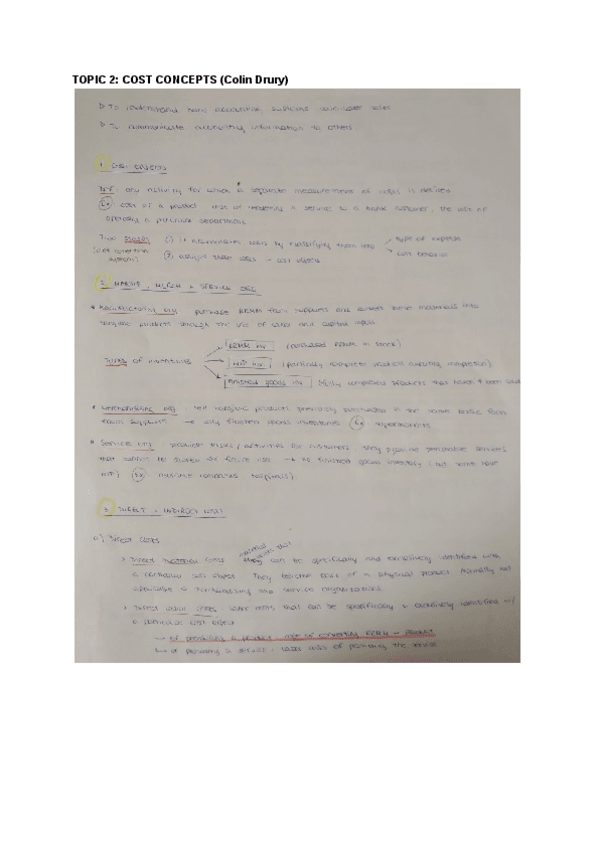 TOPIC 2: COST CONCEPTS (Colin Drury)
▷ To understand how accounting systems
▷ To communicate accounting information to others
1. Cost objects
Def: any activity for which a separate measurement of costs is desired
Ex: cost of a product cost of rendering a service to a bank customer, the cost of
operating a particular department
Two stages (1) it accumulates costs by classifying them into type of expense
(cost system) cost behavior
(2) assigns these costs → cost objects
2. MANUF, MERCH & SERVICE ORG
• Manufacturing org purchase from suppliers and convert these materials into
tangible products through the use of labor and capital inputs
Types of inventories
RRMM inv (purchased in stock)
WIP inv (partially complete products awaiting completion)
Finished goods inv (fully completed products that haven't been sold
• Merchandising org: sell tangible products previously purchased in the same basic form
from suppliers → only finished goods inventories Ex
• Service org: tasks / activities for customers
that cannot be stored for future use → no finished goods inventory (but some have
WIP) Ex hospitals)
3. DIRECT & INDIRECT COSTS
a) Direct costs
> Direct material costs can be specifically and exclusively identified with
a particular cost object They become part of a physical product Normally not
applicable to merchandising and service organizations
> Direct labor costs labor costs that can be specifically & exclusively identified w/
a particular cost object
↳ if producing a product: cost of converting RRMM → product
↳ if providing a service: labor costs of providing the service